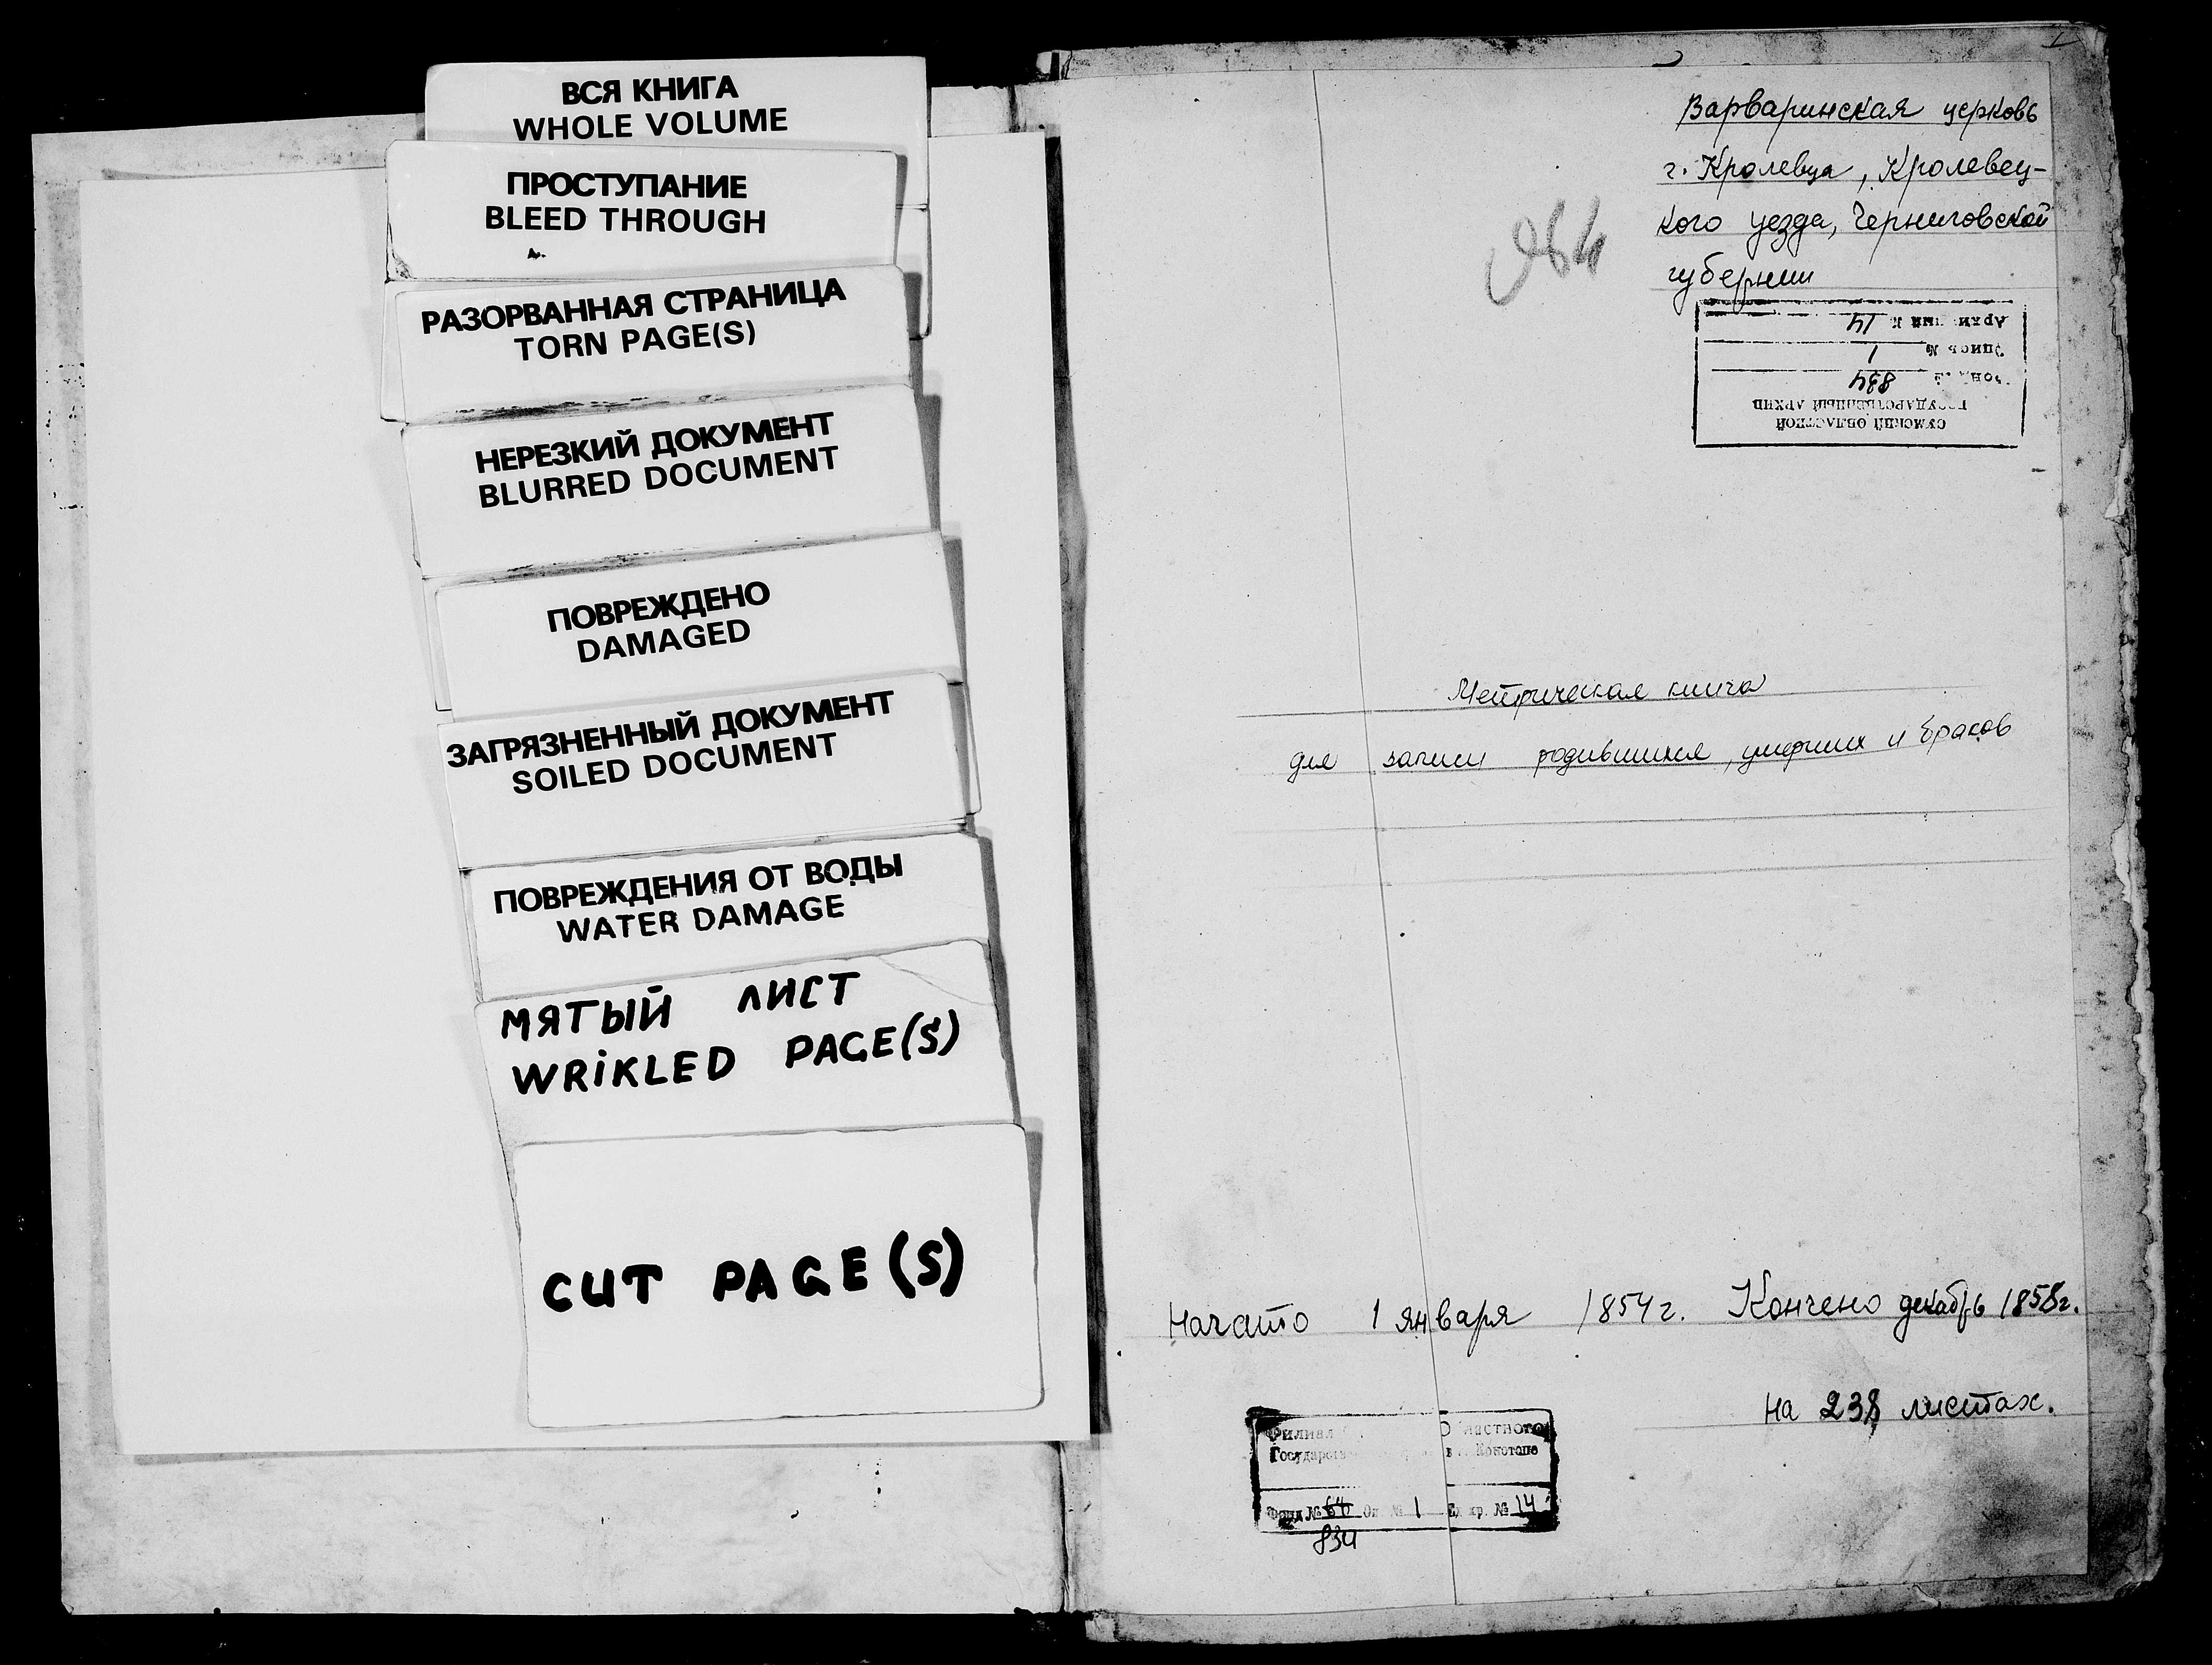 ВСЯ КНИГА
WHOLE VOLUME
ПРОСТУПАНИЕ
BLEED THROUGH
РАЗОРВАННАЯ СТРАНИЦА
TORN PAGE(S)
НЕРЕЗКИЙ ДОКУМЕНТ
BLURRED DOCUMENT
ПОВРЕЖДЕНО
DAMAGED
ЗАГРЯЗНЕННЫЙ ДОКУМЕНТ
SOILED DOCUMENT
ПОВРЕЖДЕНИЯ ОТ ВОДЫ
WATER DAMAGE
МЯТЫЙ ЛИСТ
WRiKLED PAGE(S)
CUT PAGE(S)
Варваринская церковь
г. Кролевца, Кролевец-
кого уезда, Черниговской
губернии
СУМСКИЙ ОБЛАСТНОЙ
ГОСУДАРСТВЕННЫЙ АРХИВ
834
1
14
Метрическая книга
для записи родившихся, умерших и браков
Начато 1 января 1854 г. Кончено декабрь 1858г.
на 238 листах.
Филиал
в Конотопе
Фонд № 64 Оп № 1 Ед. хр. № 14
834